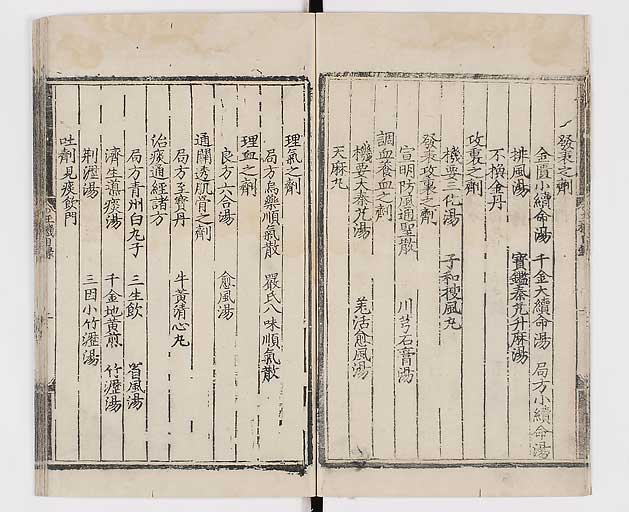 發表之劑
金匱小續命湯 千金大續命湯 局方小續命湯
排風湯 寶鑑秦艽升麻湯
不換金丹
攻裏之劑
機要三化湯 子和搜風丸
發表攻裏之劑
宣明防風通聖散 川芎石膏湯
調血養血之劑
機要大秦艽湯 羌活愈風湯
天麻丸
理氣之劑
局方烏藥順氣散 嚴氏八味順氣散
理血之劑
良方六合湯 愈風湯
通關透肌骨之劑
局方至寶丹 牛黃清心丸
治痰通經諸方
局方青州白丸子 三生飲 省風湯
濟生滌痰湯 千金地黃煎 竹瀝湯
荆瀝湯 三因小竹瀝湯
吐劑見痰飲門